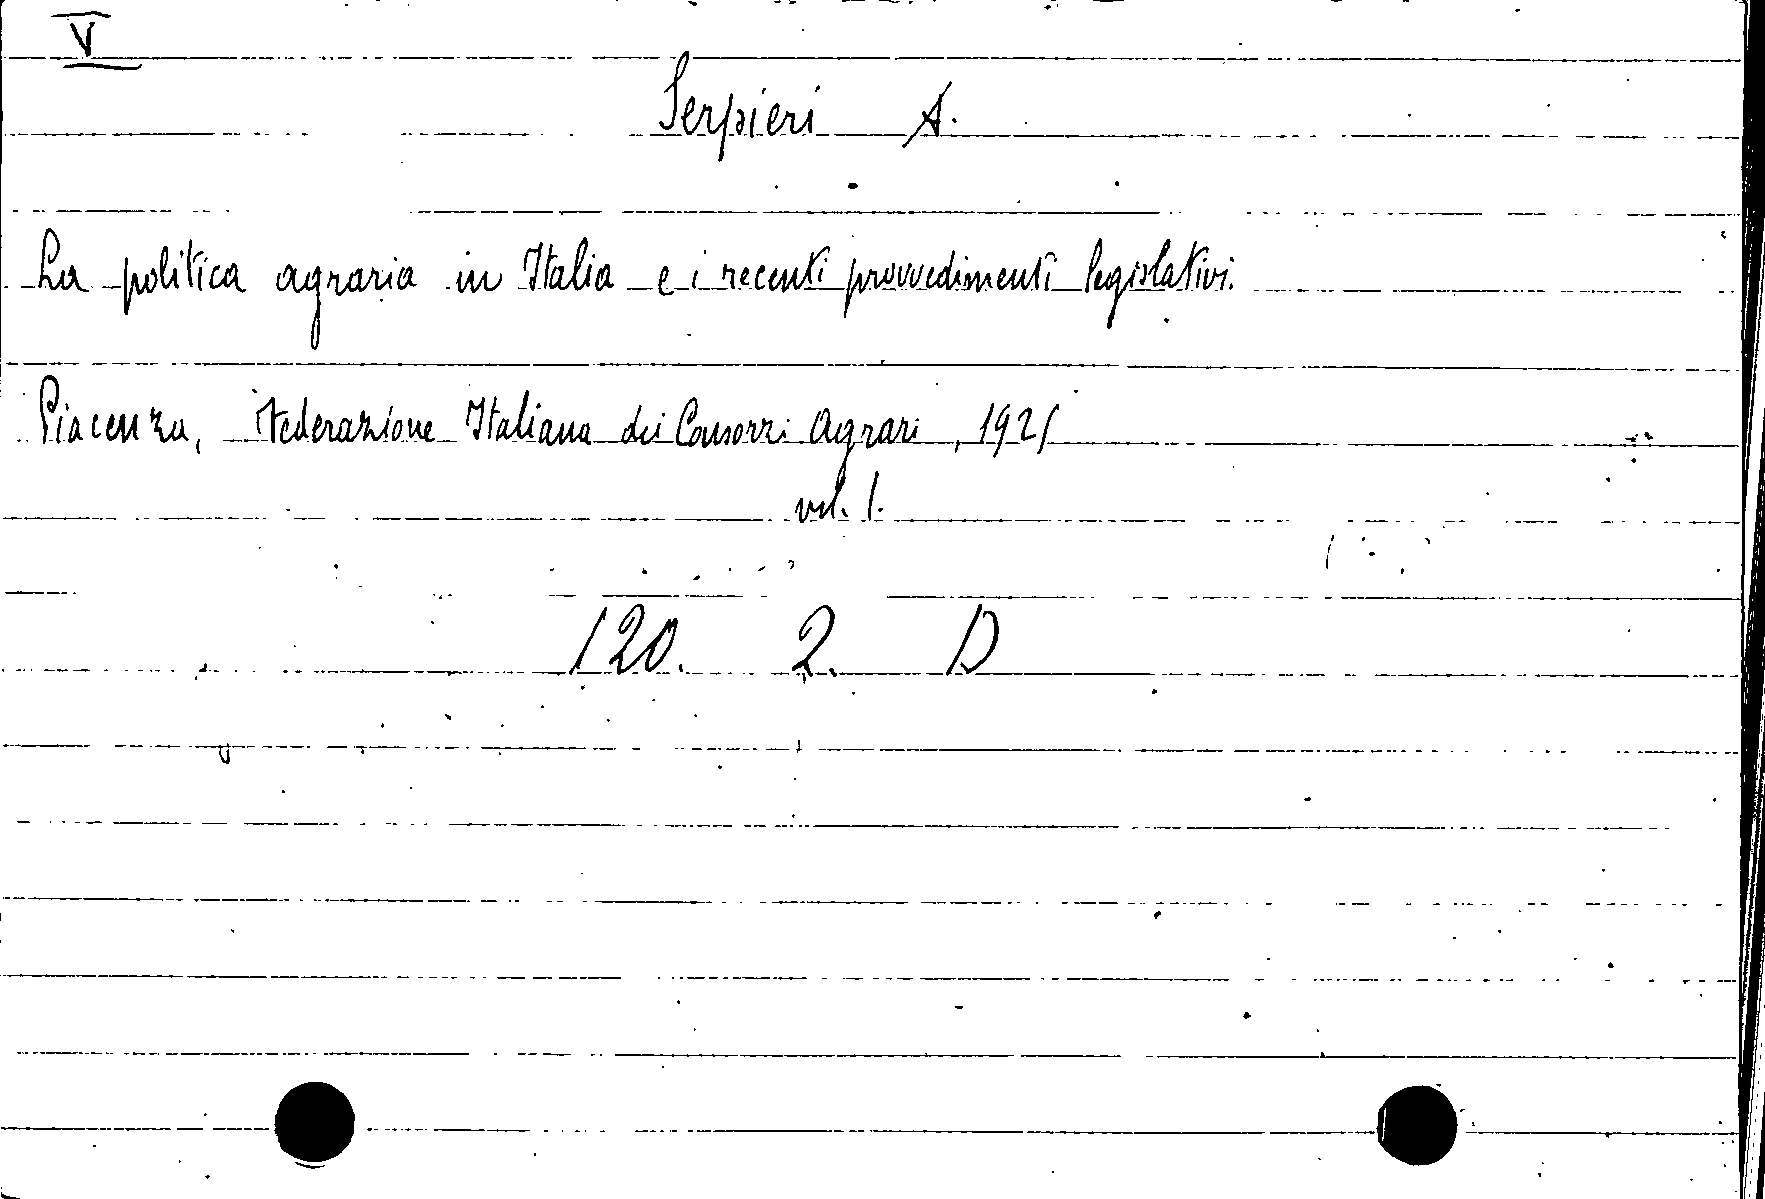 V
Serpieri A.
La politica agraria in Italia e i recenti provvedimenti legislativi.
Piacenza, Federazione Italiana dei Consorzi Agrari, 1925
vol. 1.
120. 2. D